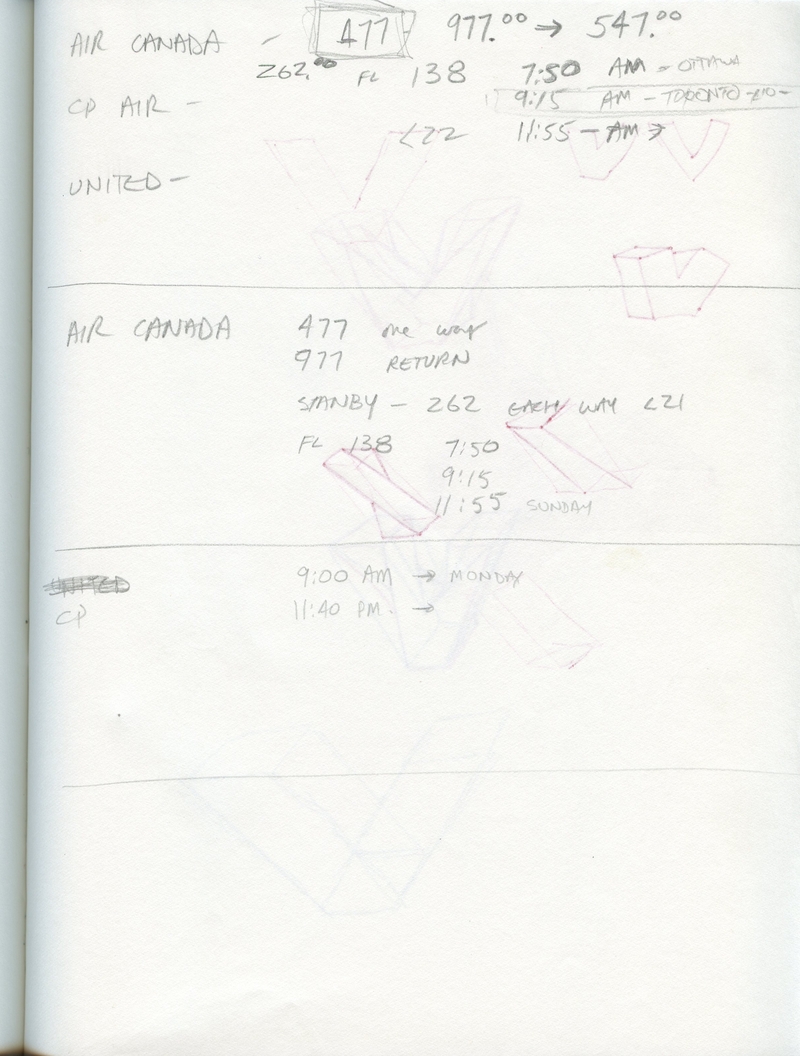 AIR CANADA - 477 977.00 → 547.00
262.00 FL 138 7:50 AM - OTTAWA
CP AIR - 9:15 AM - TORONTO -
<22 11:55 - AM →
UNITED -
AIR CANADA 477 one way
977 RETURN
STANBY - 262 EACH WAY <21
FL 138 7:50
9:15
11:55 SUNDAY
UNITED 9:00 AM → MONDAY
CP 11:40 PM. →